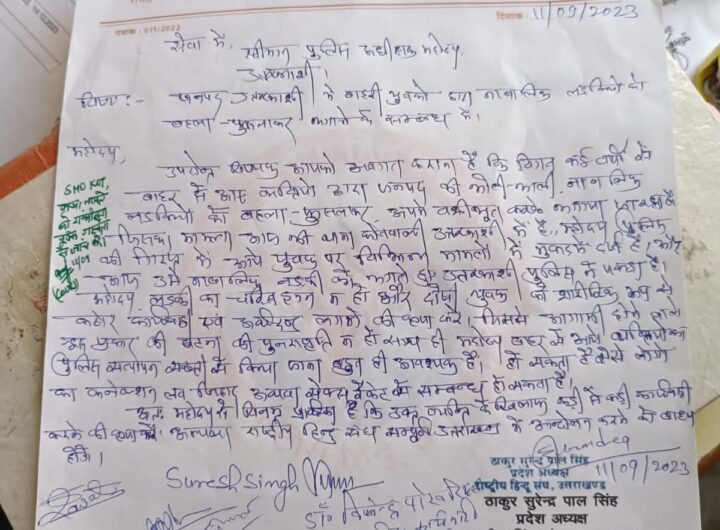 पत्रांक : 011/2022
दिनांक : 11/09/2023
सेवा में,
श्रीमान पुलिस अधीक्षक महोदय
उत्तरकाशी।
विषय:- जनपद उत्तरकाशी में बाहरी युवकों द्वारा नाबालिक लड़कियों को
बहला-फुसलाकर भगाने के सम्बन्ध में।
महोदय,
उपरोक्त विषयक आपको अवगत कराना है कि विगत कई वर्षों से
बाहर से आए व्यक्तियों द्वारा जनपद की भोली-भाली नाबालिक
लड़कियों को बहला-फुसलाकर अपने वशीभूत करके भगाया जा रहा है
जिसका मामला आज भी थाना कोतवाली उत्तरकाशी में है, महोदय पुलिस
की गिरफ्त में आये युवक पर विभिन्न मामलों में मुकदमें दर्ज है, और
आज उसे नाबालिक लड़की को भगाते हुए उत्तरकाशी पुलिस ने पकड़ा है।
महोदय लड़की का चरित्र हनन न हो और दोषी युवक को शारीरिक रूप से
कठोर कार्यवाही एवं की कृपा करें जिससे आगामी होने वाली
इस प्रकार की घटना की पुनरावृत्ति न हो साथ ही महोदय बाहर से आये व्यक्तियों का
पुलिस सत्यापन सख्ती से किया जाना बहुत ही आवश्यक है। हो सकता है ऐसे लोगों
का कनेक्शन लव जिहाद अथवा सेक्स रैकेट से सम्बन्ध हो सकता है।
अतः महोदय से विनम्र प्रार्थना है कि उक्त व्यक्ति के खिलाफ कड़ी से कड़ी कार्यवाही
करने की कृपा करें। अन्यथा राष्ट्रीय हिन्दू संघ सम्पूर्ण उत्तराखण्ड में आन्दोलन करने को बाध्य
होंगे।
SHO
11/09
Suresh Singh
डॉ०
ठाकुर सुरेन्द्र पाल सिंह
प्रदेश अध्यक्ष
11/09/2023
राष्ट्रीय हिन्दू संघ, उत्तराखण्ड
ठाकुर सुरेन्द्र पाल सिंह
प्रदेश अध्यक्ष